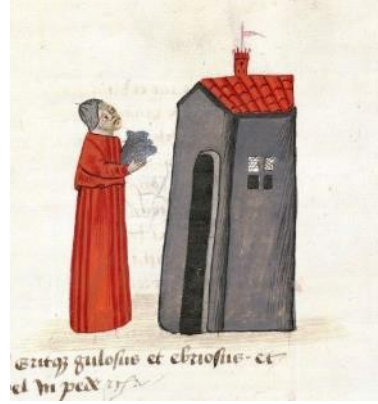 Eritqꝫ gulosus et ebriosus - et
el in pede